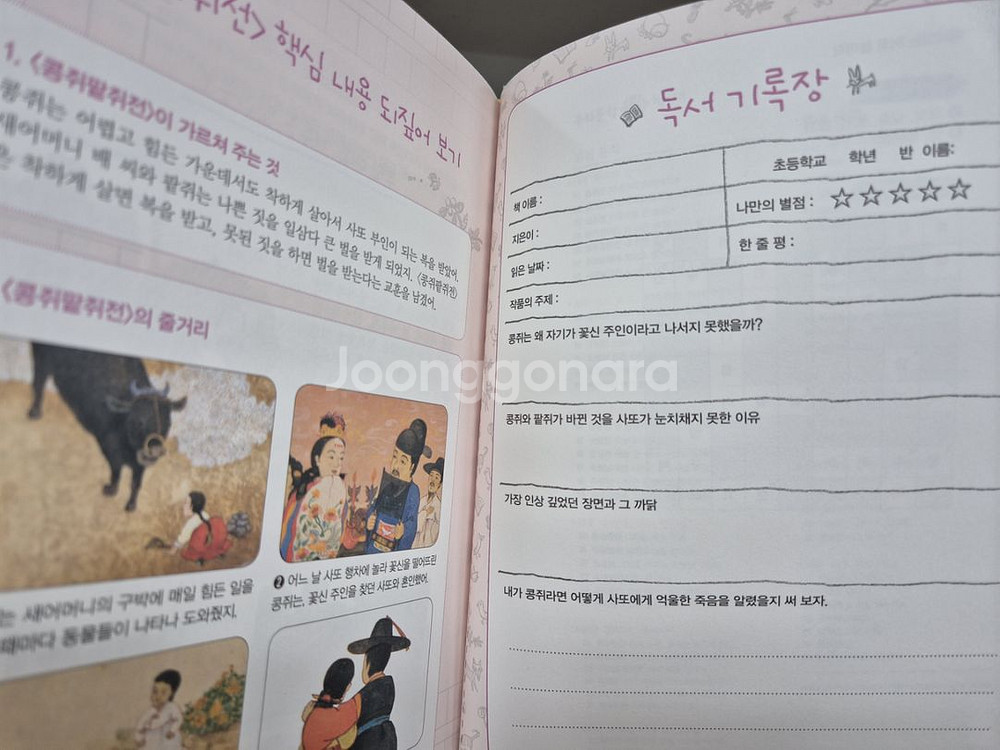 쥐전> 핵심 내용 되짚어 보기
1. <콩쥐팥쥐전>이 가르쳐 주는 것
콩쥐는 어렵고 힘든 가운데서도 착하게 살아서 사또 부인이 되는 복을 받았어.
새어머니 배 씨와 팥쥐는 나쁜 짓을 일삼다 큰 벌을 받게 되었지. <콩쥐팥쥐전>
은 착하게 살면 복을 받고, 못된 짓을 하면 벌을 받는다는 교훈을 남겼어.
<콩쥐팥쥐전>의 줄거리
는 새어머니의 구박에 매일 힘든 일을
때마다 동물들이 나타나 도와줬지.
❷ 어느 날 사또 행차에 놀라 꽃신을 떨어뜨린
콩쥐는, 꽃신 주인을 찾던 사또와 혼인했어.
독서 기록장
책 이름 :
초등학교 학년 반 이름:
지은이 :
나만의 별점 : ☆☆☆☆☆
읽은 날짜 :
한 줄 평 :
작품의 주제 :
콩쥐는 왜 자기가 꽃신 주인이라고 나서지 못했을까?
콩쥐와 팥쥐가 바뀐 것을 사또가 눈치채지 못한 이유
가장 인상 깊었던 장면과 그 까닭
내가 콩쥐라면 어떻게 사또에게 억울한 죽음을 알렸을지 써 보자.
Joonggonara